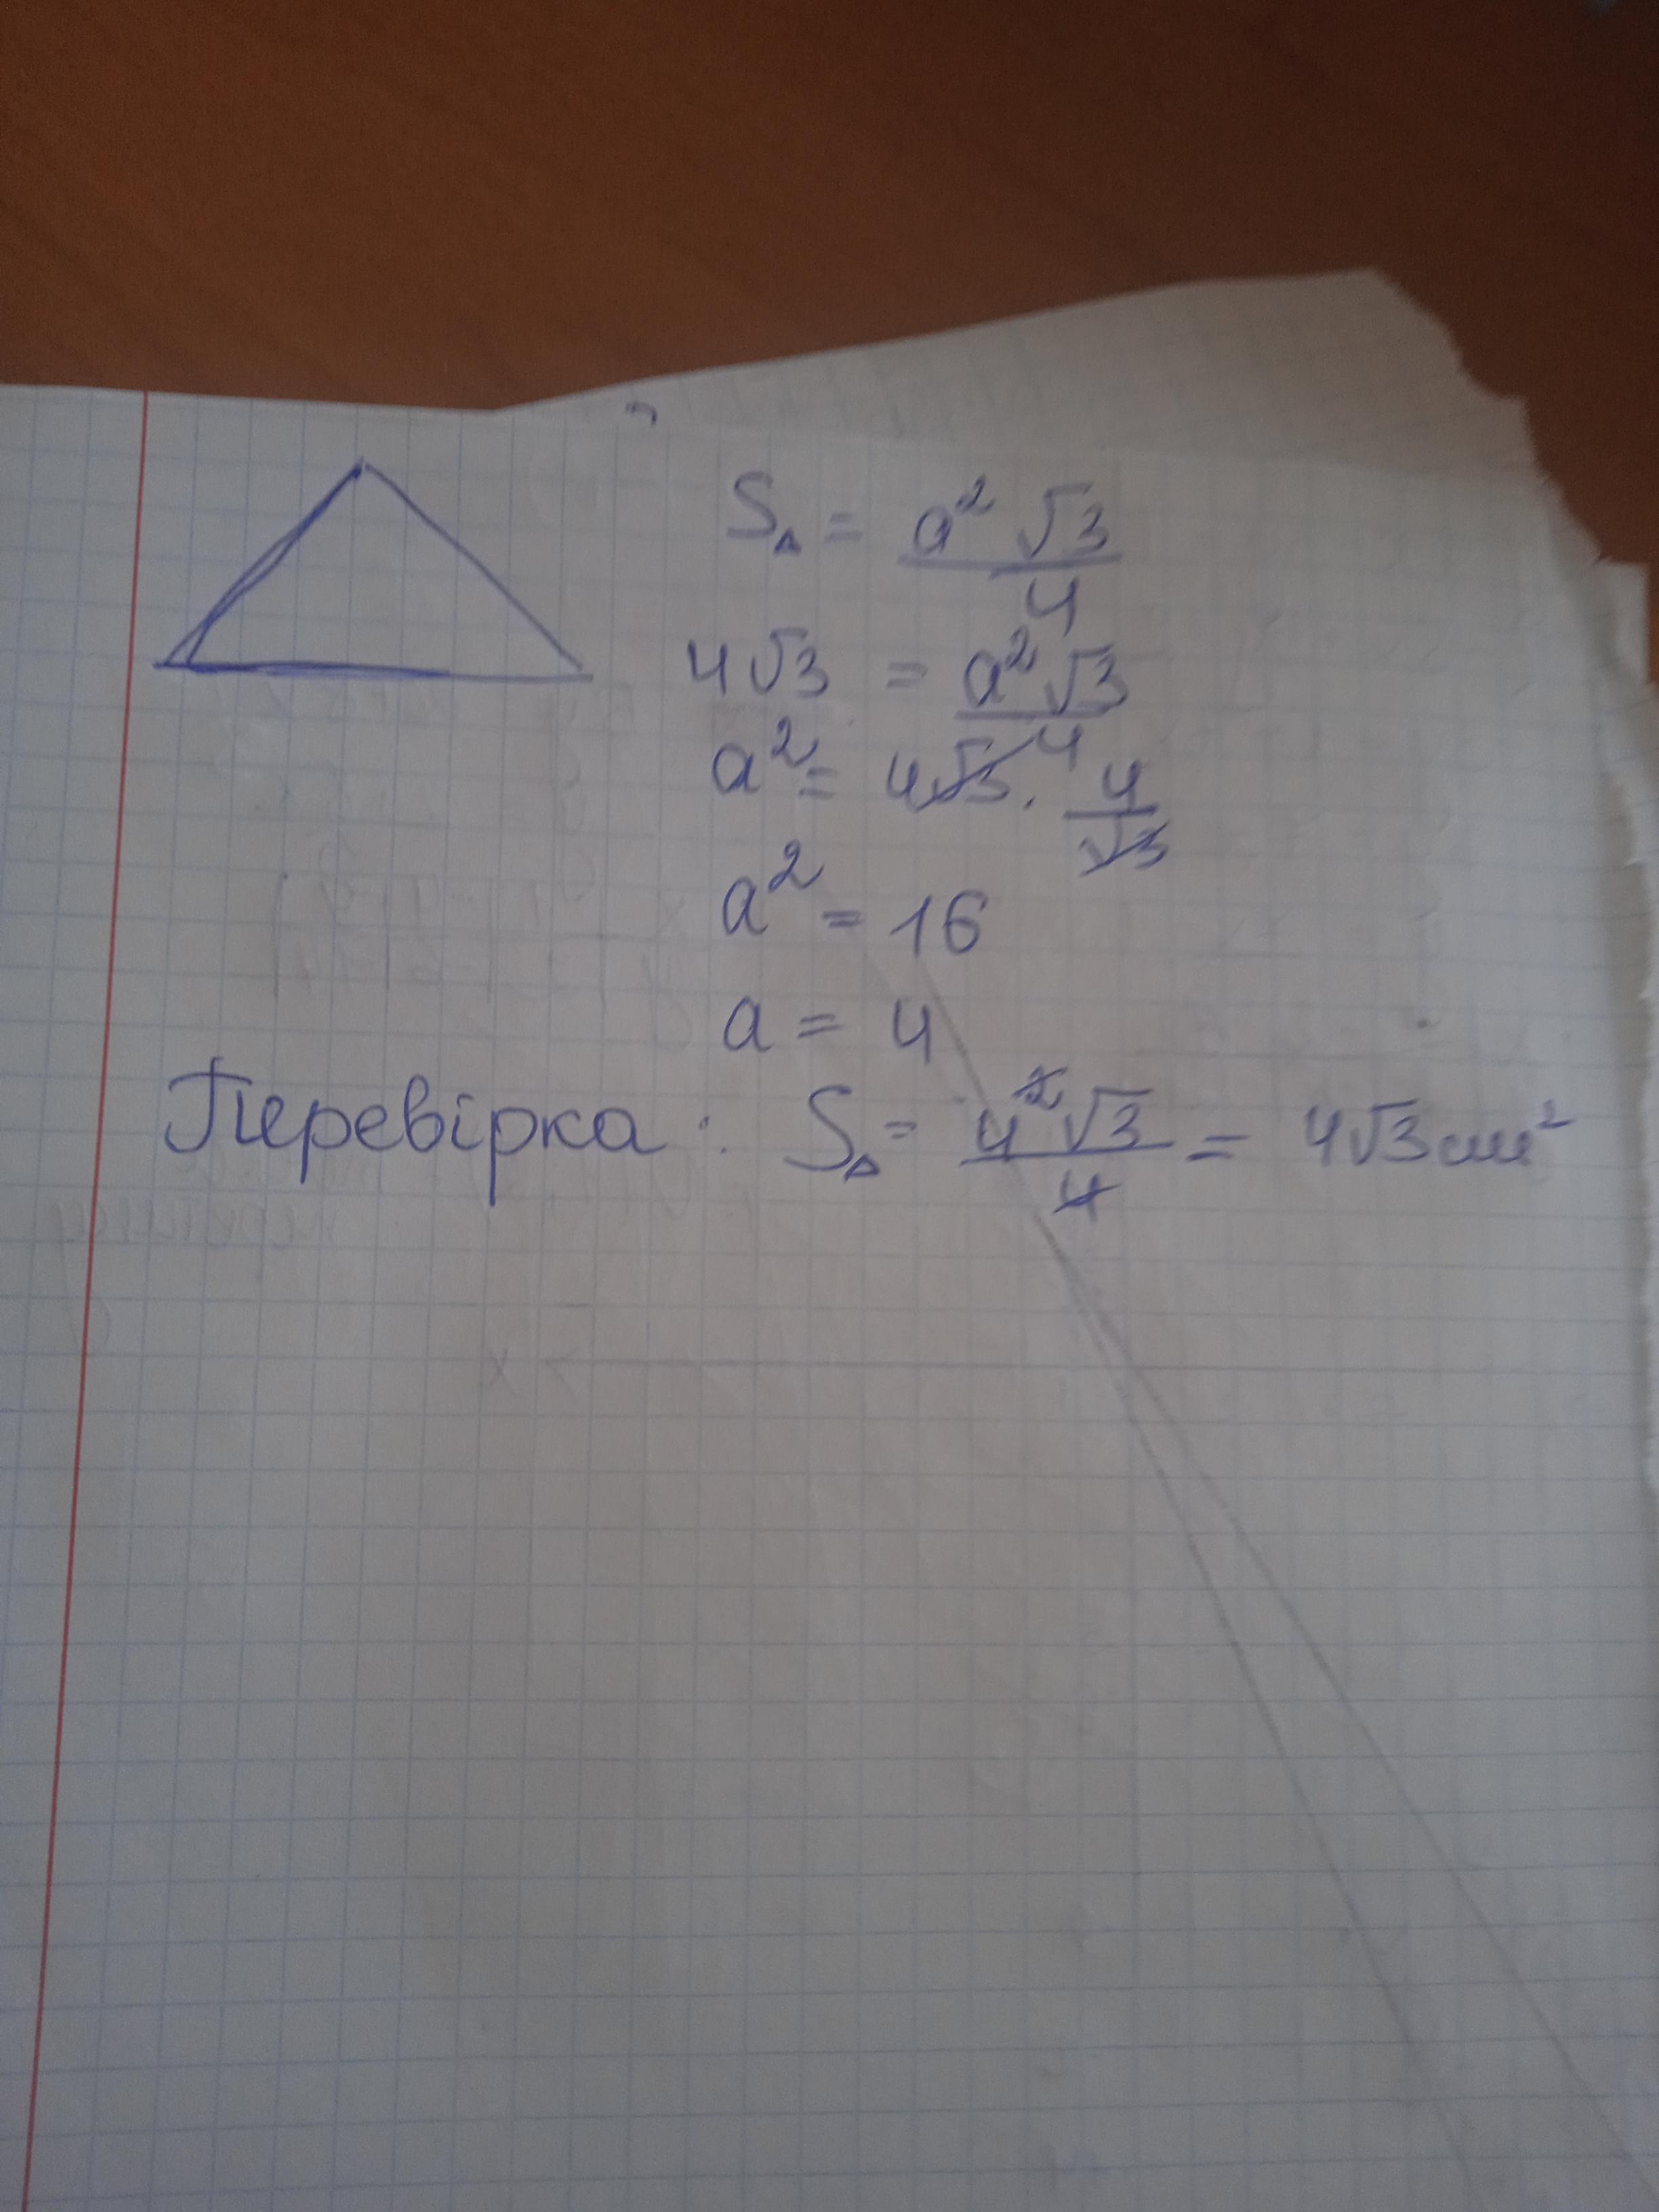 S△ = a²√3/4
4√3 = a²√3/4
a² = 4√3 · 4/√3
a² = 16
a = 4
Перевірка: S△ = 4²√3/4 = 4√3 см²